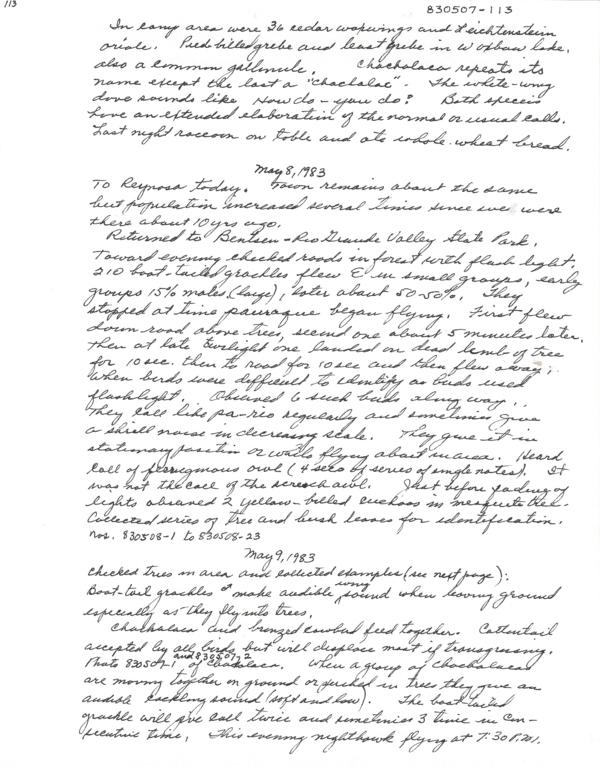 113
830507-113
In camp area were 36 cedar waxwings and Lichtenstein
oriole. Pied-billed grebe and least grebe in w oxbow lake,
also a common gallinule. Chachalaca repeats its
name except the last a "chachalac". The white-wing
dove sounds like How do-you do? Both species
have an extended elaboration of the normal or usual calls.
Last night raccoon on table and ate whole-wheat bread.
May 8, 1983
To Reynosa today. Town remains about the same
but population increased several times since we were
there about 10 yrs ago.
Returned to Bentsen-Rio Grande Valley State Park.
Toward evening checked roads in forest with flash light.
210 boat-tailed grackles flew E in small groups, early
groups 15% males (large), later about 50-50%. They
stopped at time pauraque began flying. First flew
down road above trees, second one about 5 minutes later.
Then at late twilight one landed on dead limb of tree
for 10 sec. then to road for 10 sec and then flew away.
When birds were difficult to identify as birds used
flashlight. Observed 6 such birds along way.
They call like pa-rio regularly and sometimes give
a shrill noise in decreasing scale. They give it in
stationary position or while flying about in area. Heard
call of ferruginous owl (4 secs of series of single notes). It
was not the call of the screech owl. Just before fading of
lights observed 2 yellow-billed cuckoos in mesquite tree.
Collected series of tree and bush leaves for identification.
Nos. 830508-1 to 830508-23
May 9, 1983
Checked trees in area and collected examples (see next page).
Boat-tail grackles ♂ make audible wing sound when leaving ground
especially as they fly into trees.
Chachalaca and bronzed cowbird feed together. Cottontail
accepted by all birds but will displace most if trangressing.
Photo 830509-1 and 830509-2 of Chachalaca. When a group of chachalacas
are moving together on ground or perched in trees they give an
audible cackling sound (soft and low). The boat-tailed
grackle will give call twice and sometimes 3 time in con-
secutive time. This evening nighthawk flying at 7:30 P.M.